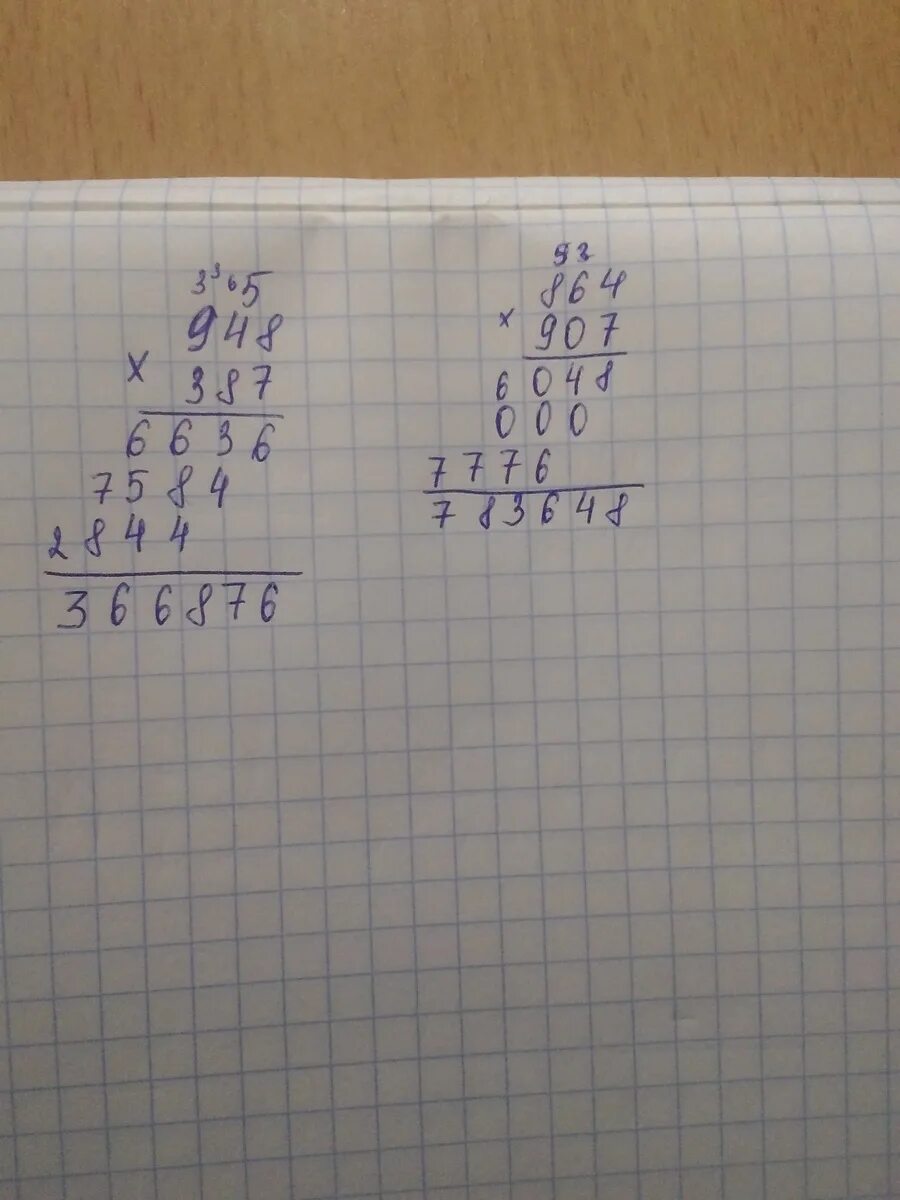 3 3 6 5
948
× 387
6636
7584
2844
366876
93
864
× 907
6048
000
7776
783648